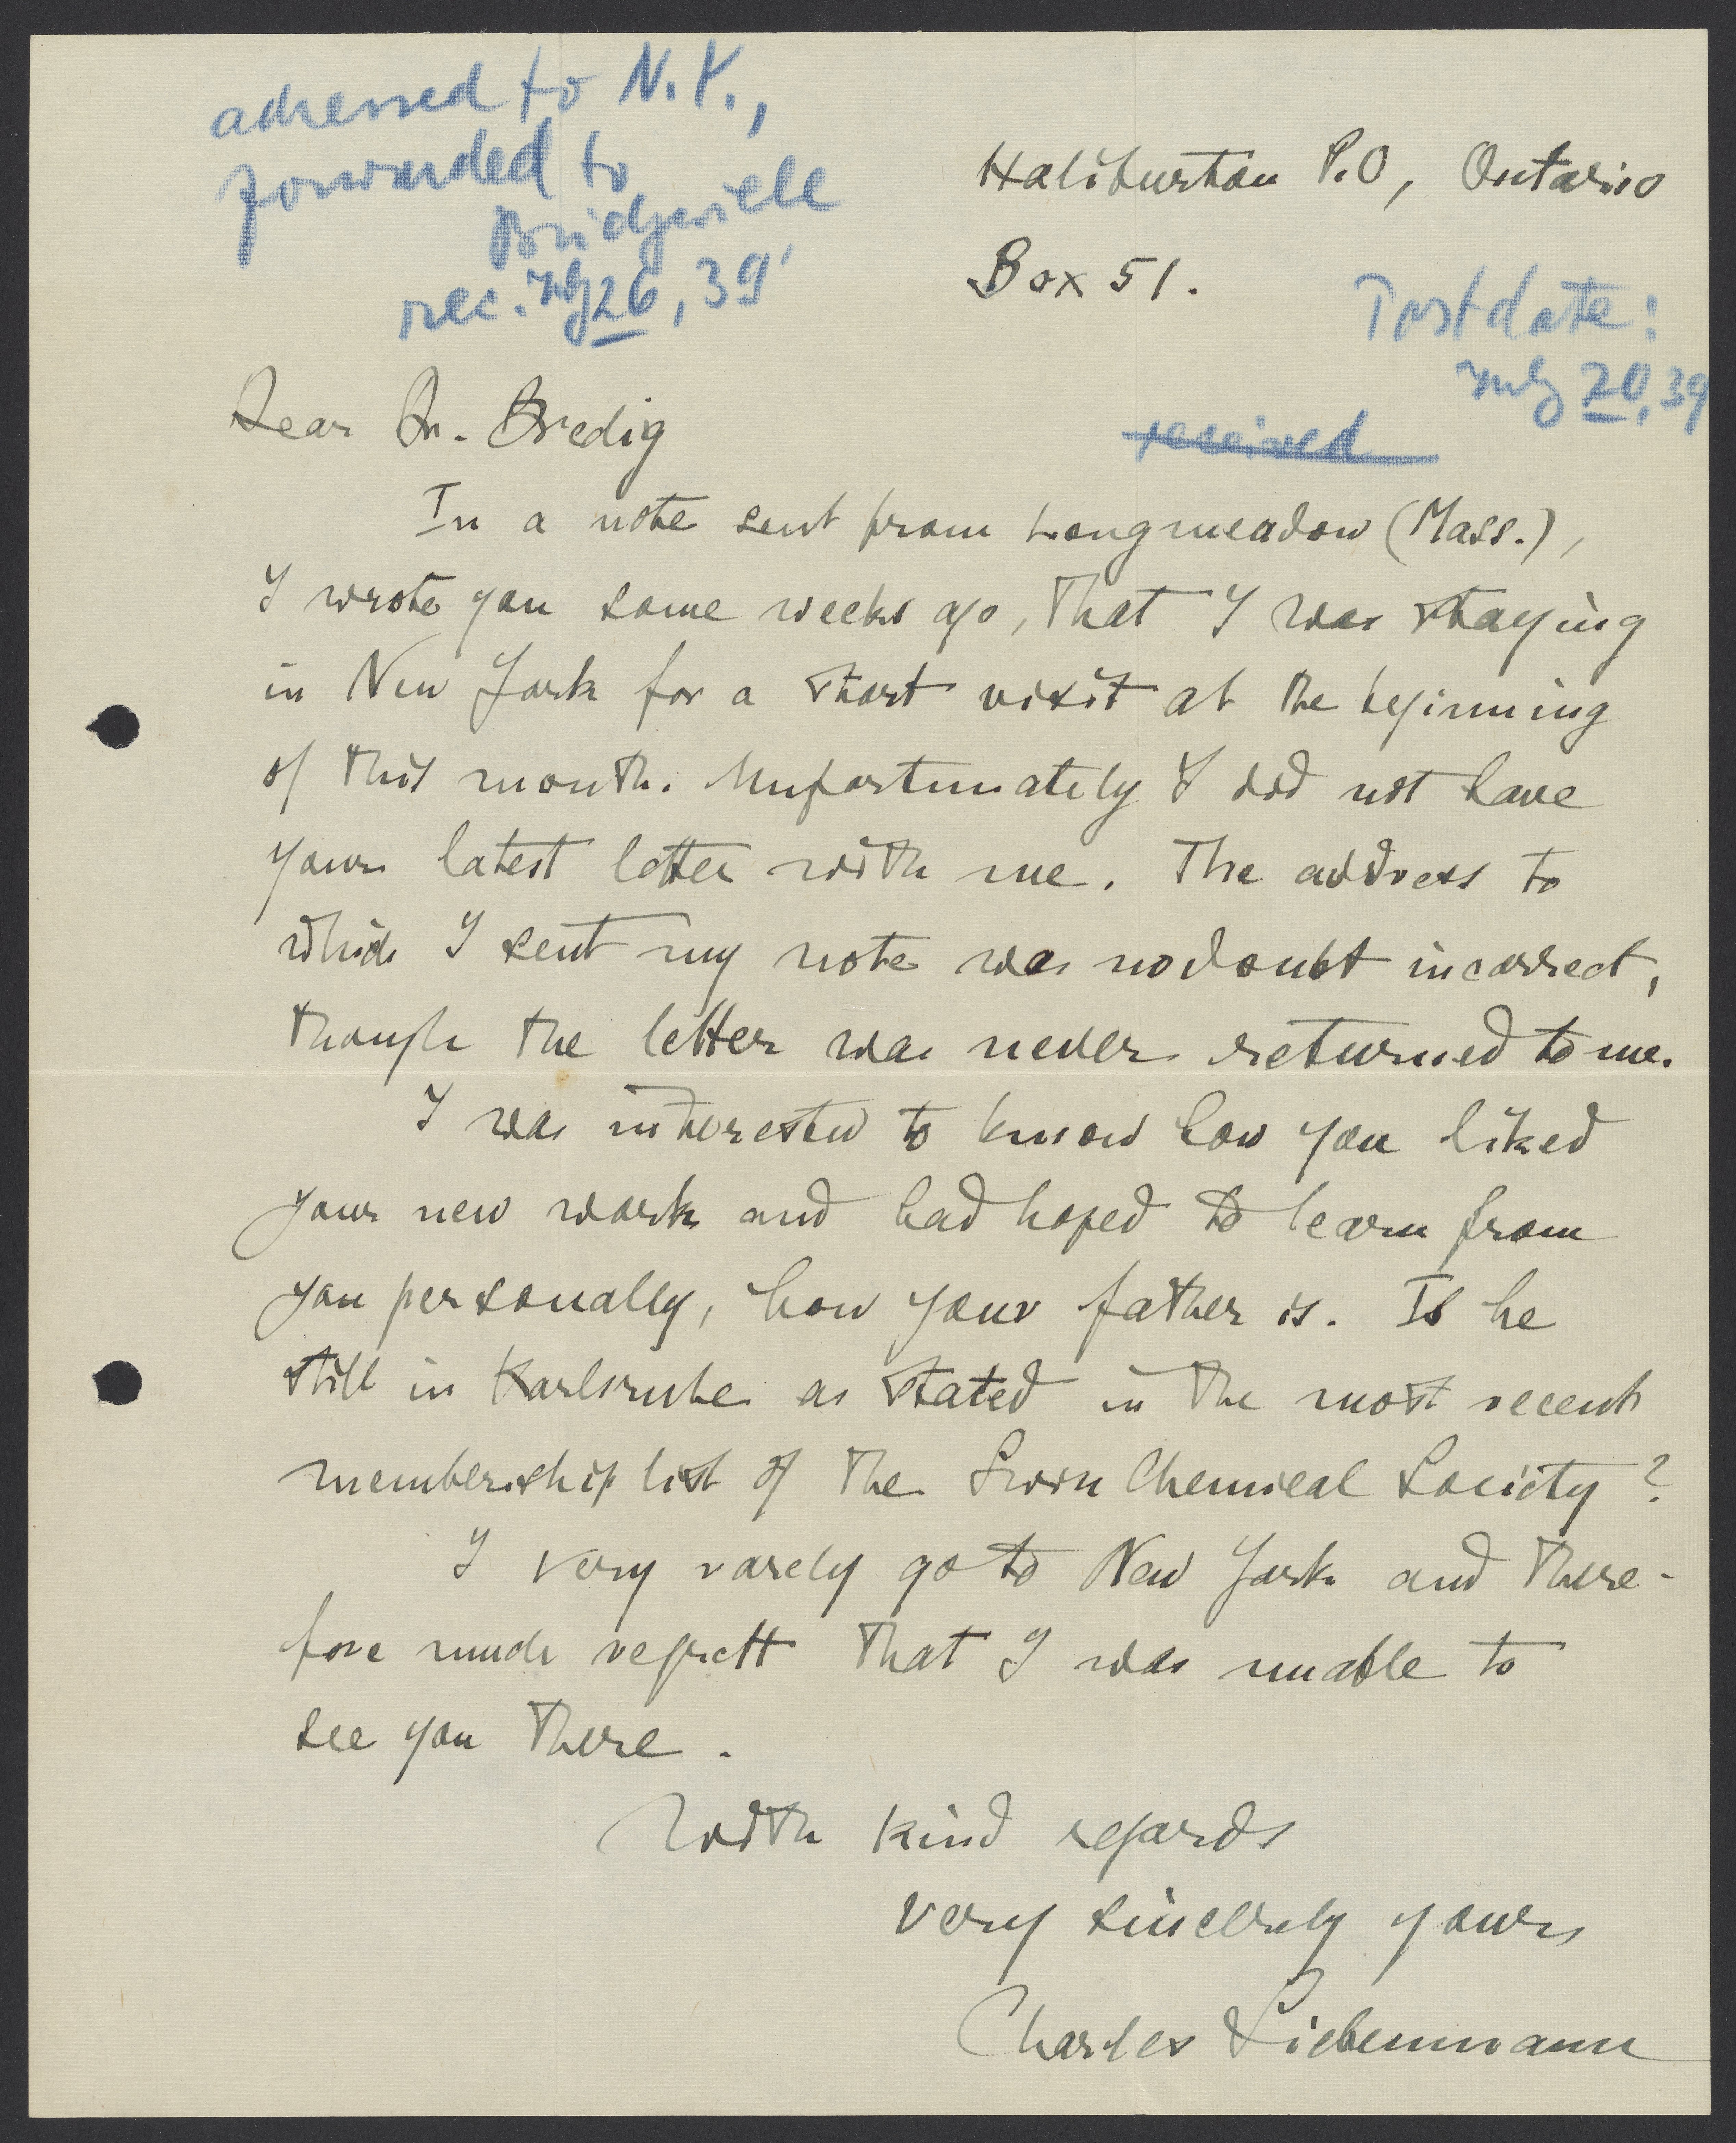 adressed to N.Y.,
forwarded to
Bridgeville
rec. July 26, 39'
Haliburton P.O, Ontario
Box 51.
Postdate:
July 20, 39
received
Dear Dr. Bredig
In a note sent from Longmeadow (Mass.),
I wrote you some weeks ago, that I was staying
in New York for a short visit at the beginning
of this month. Unfortunately I did not have
your latest letter with me. The address to
which I sent my note was no doubt incorrect,
though the letter was never returned to me.
I was interested to know how you liked
your new work and had hoped to learn from
you personally, how your father is. Is he
still in Karlsruhe as stated in the most recent
membership list of the Swiss Chemical Society?
I very rarely go to New York and there-
fore much regrett that I was unable to
see you there.
With kind regards
very sincerely yours
Charles Liebermann